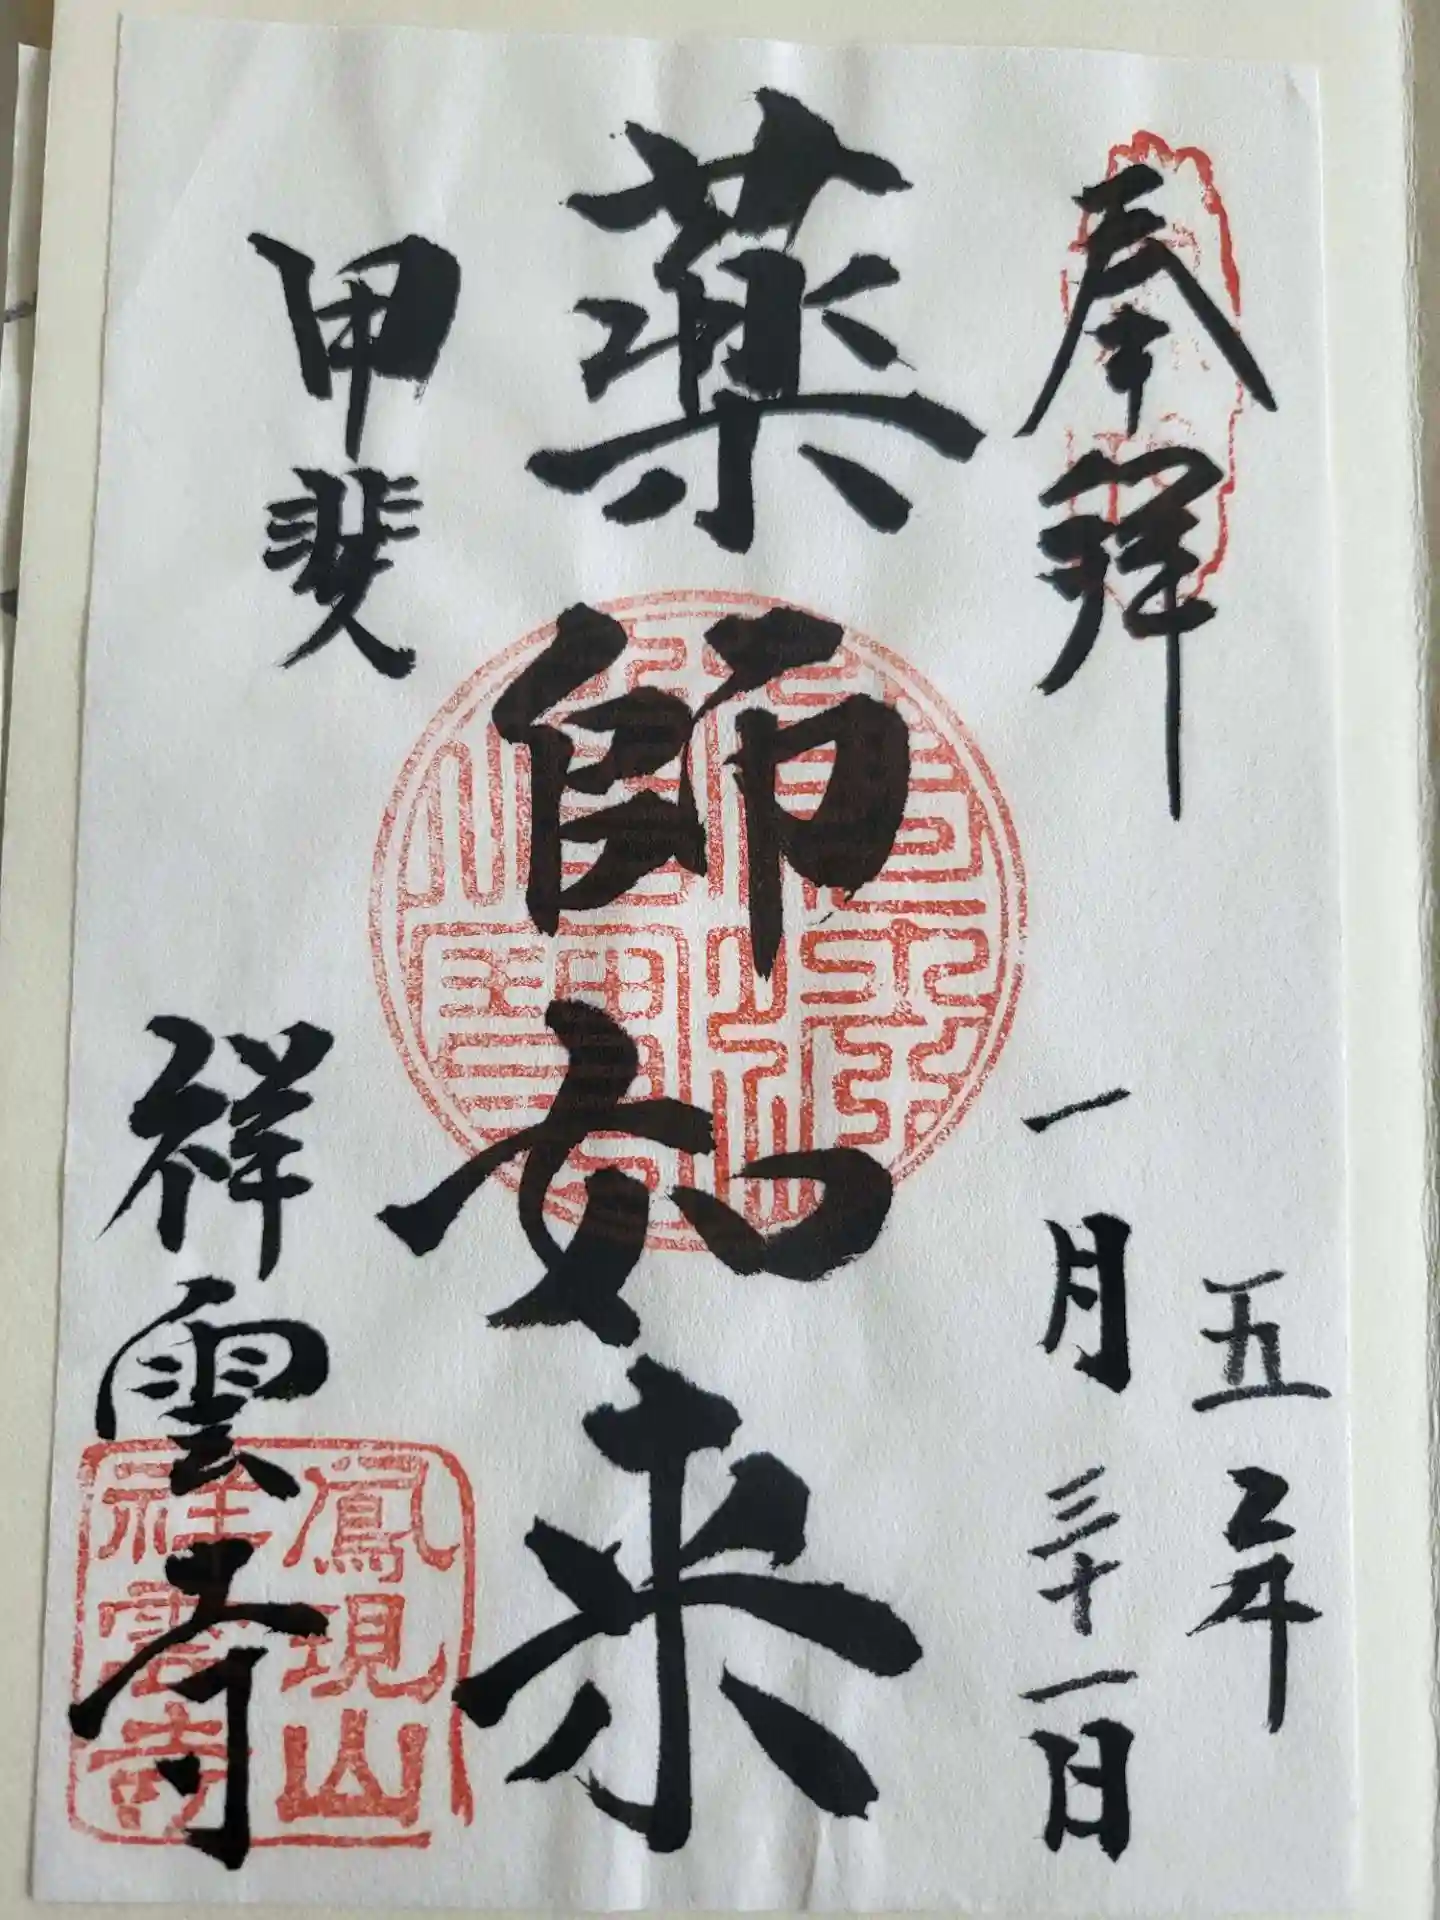 奉拝
五年
一月三十一日
薬師如来
甲斐
祥雲寺
鳳現山
祥雲寺